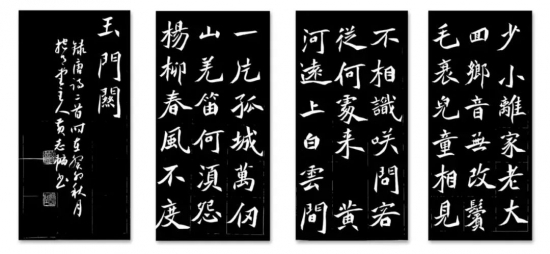 少小離家老大
回鄉音無改鬢
毛衰兒童相見
不相識咲問客
從何處来 黄
河遠上白雲間
一片孤城萬仞
山羌笛何須怨
楊柳春風不度
玉門關
録唐诗二首时在癸卯秋月
堂主人黄志书